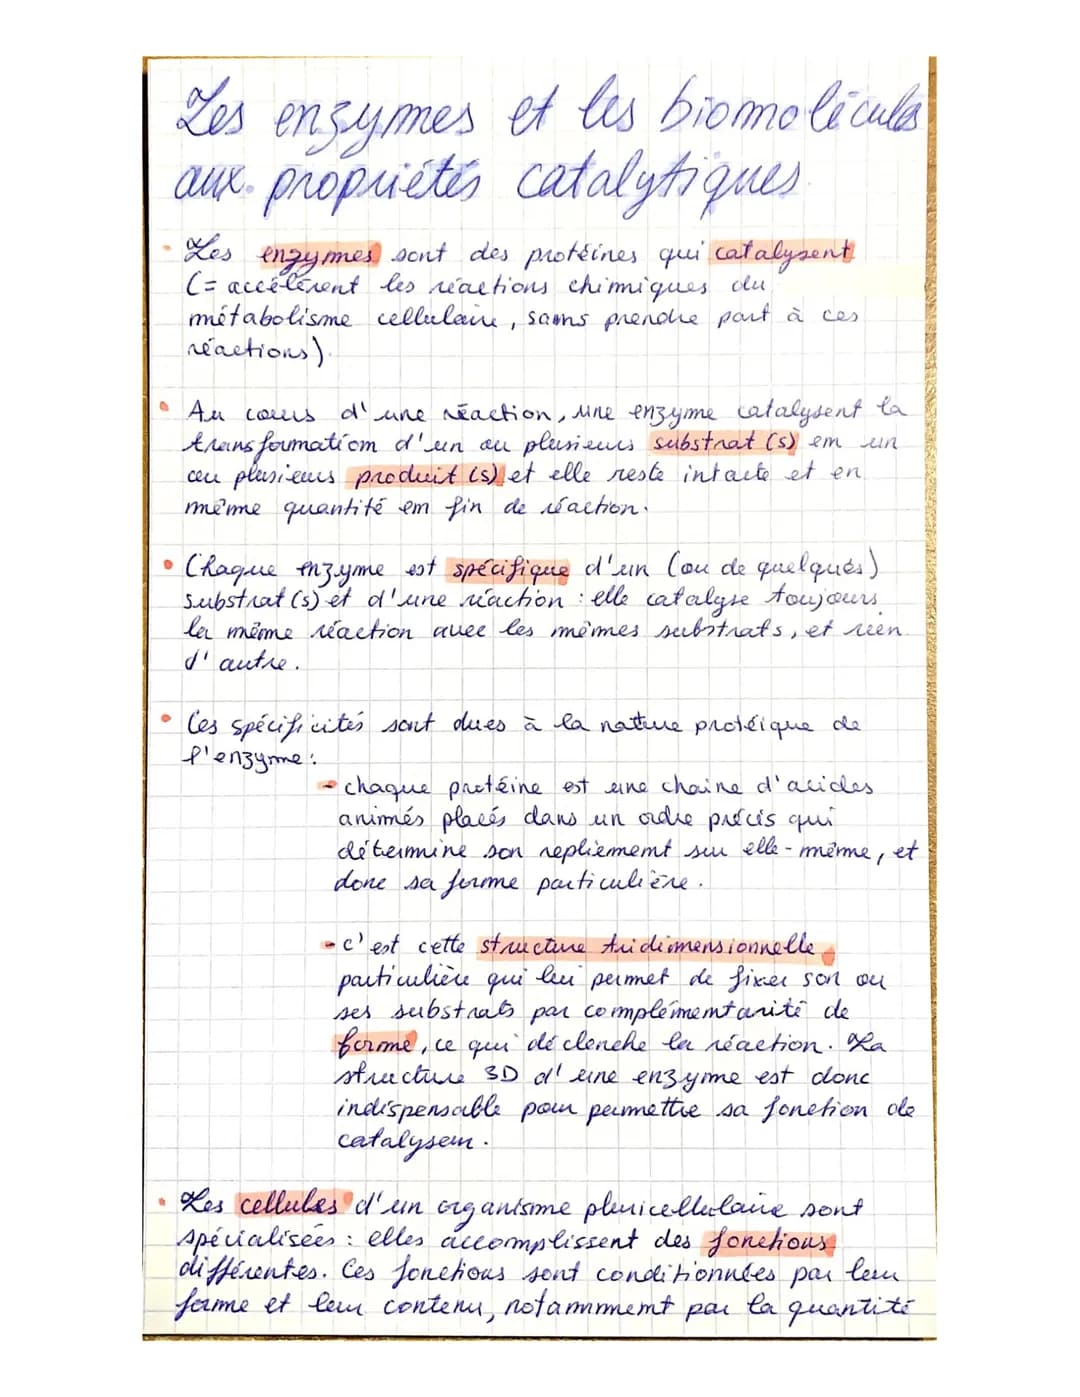 Les enzymes et les biomolécules
aux propriétés catalytiques
• Les enzymes sont des protéines qui catalysent
(= accélèrent les réactions chimiques du
métabolisme cellulaire, sans prendre part à ces
réactions).
• Au cours d'une réaction, une enzyme catalysent la
transformation d'un ou plusieurs substrat(s) en un
ou plusieurs produit(s) et elle reste intacte et en
même quantité em fin de réaction.
• Chaque enzyme est spécifique d'un (ou de quelqués)
substrat(s) et d'une réaction : elle catalyse toujours
la même réaction avec les mêmes substrats, et rien
d'autre.
• Ces spécificités sont dues à la nature protéique de
l'enzyme :
- chaque protéine est une chaine d'acides
animés placés dans un ordre précis qui
détermine son repliement sur elle-même, et
donc sa forme particulière.
- c'est cette structure tridimensionnelle
particulière qui lui permet de fixer son ou
ses substrats par complémentarité de
forme, ce qui déclenche la réaction. La
structure 3D d'une enzyme est donc
indispensable pour permettre sa fonction de
catalyseur.
• Les cellules d'un organisme pluricellulaire sont
spécialisées : elles accomplissent des fonctions
différentes. Ces fonctions sont conditionnées par leur
forme et leur contenu, notamment par la quantité